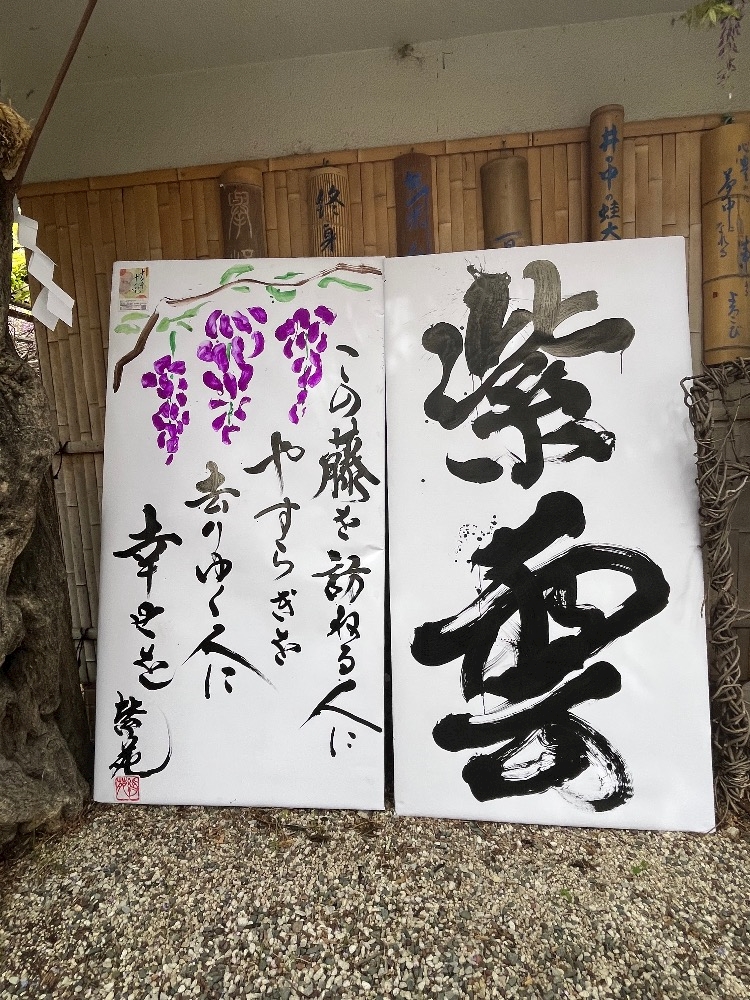 紫雲
この藤を訪ねる人に
やすらぎを
去りゆく人に
幸せを
終身
井の中の蛙大
夢中